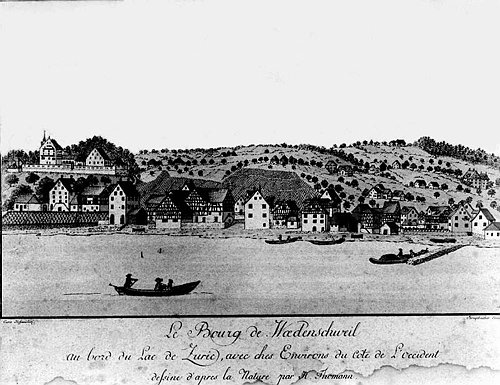 Le Bourg de Wædenschweil
au bord du Lac de Zuric, avec ches Environs du côté de L'occident
dessiné d'apres la Nature par H. Thomann